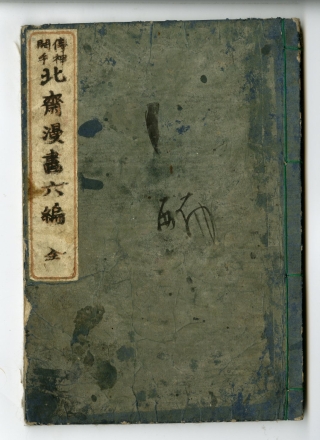 傳神
開手
北齋漫畫六編
全